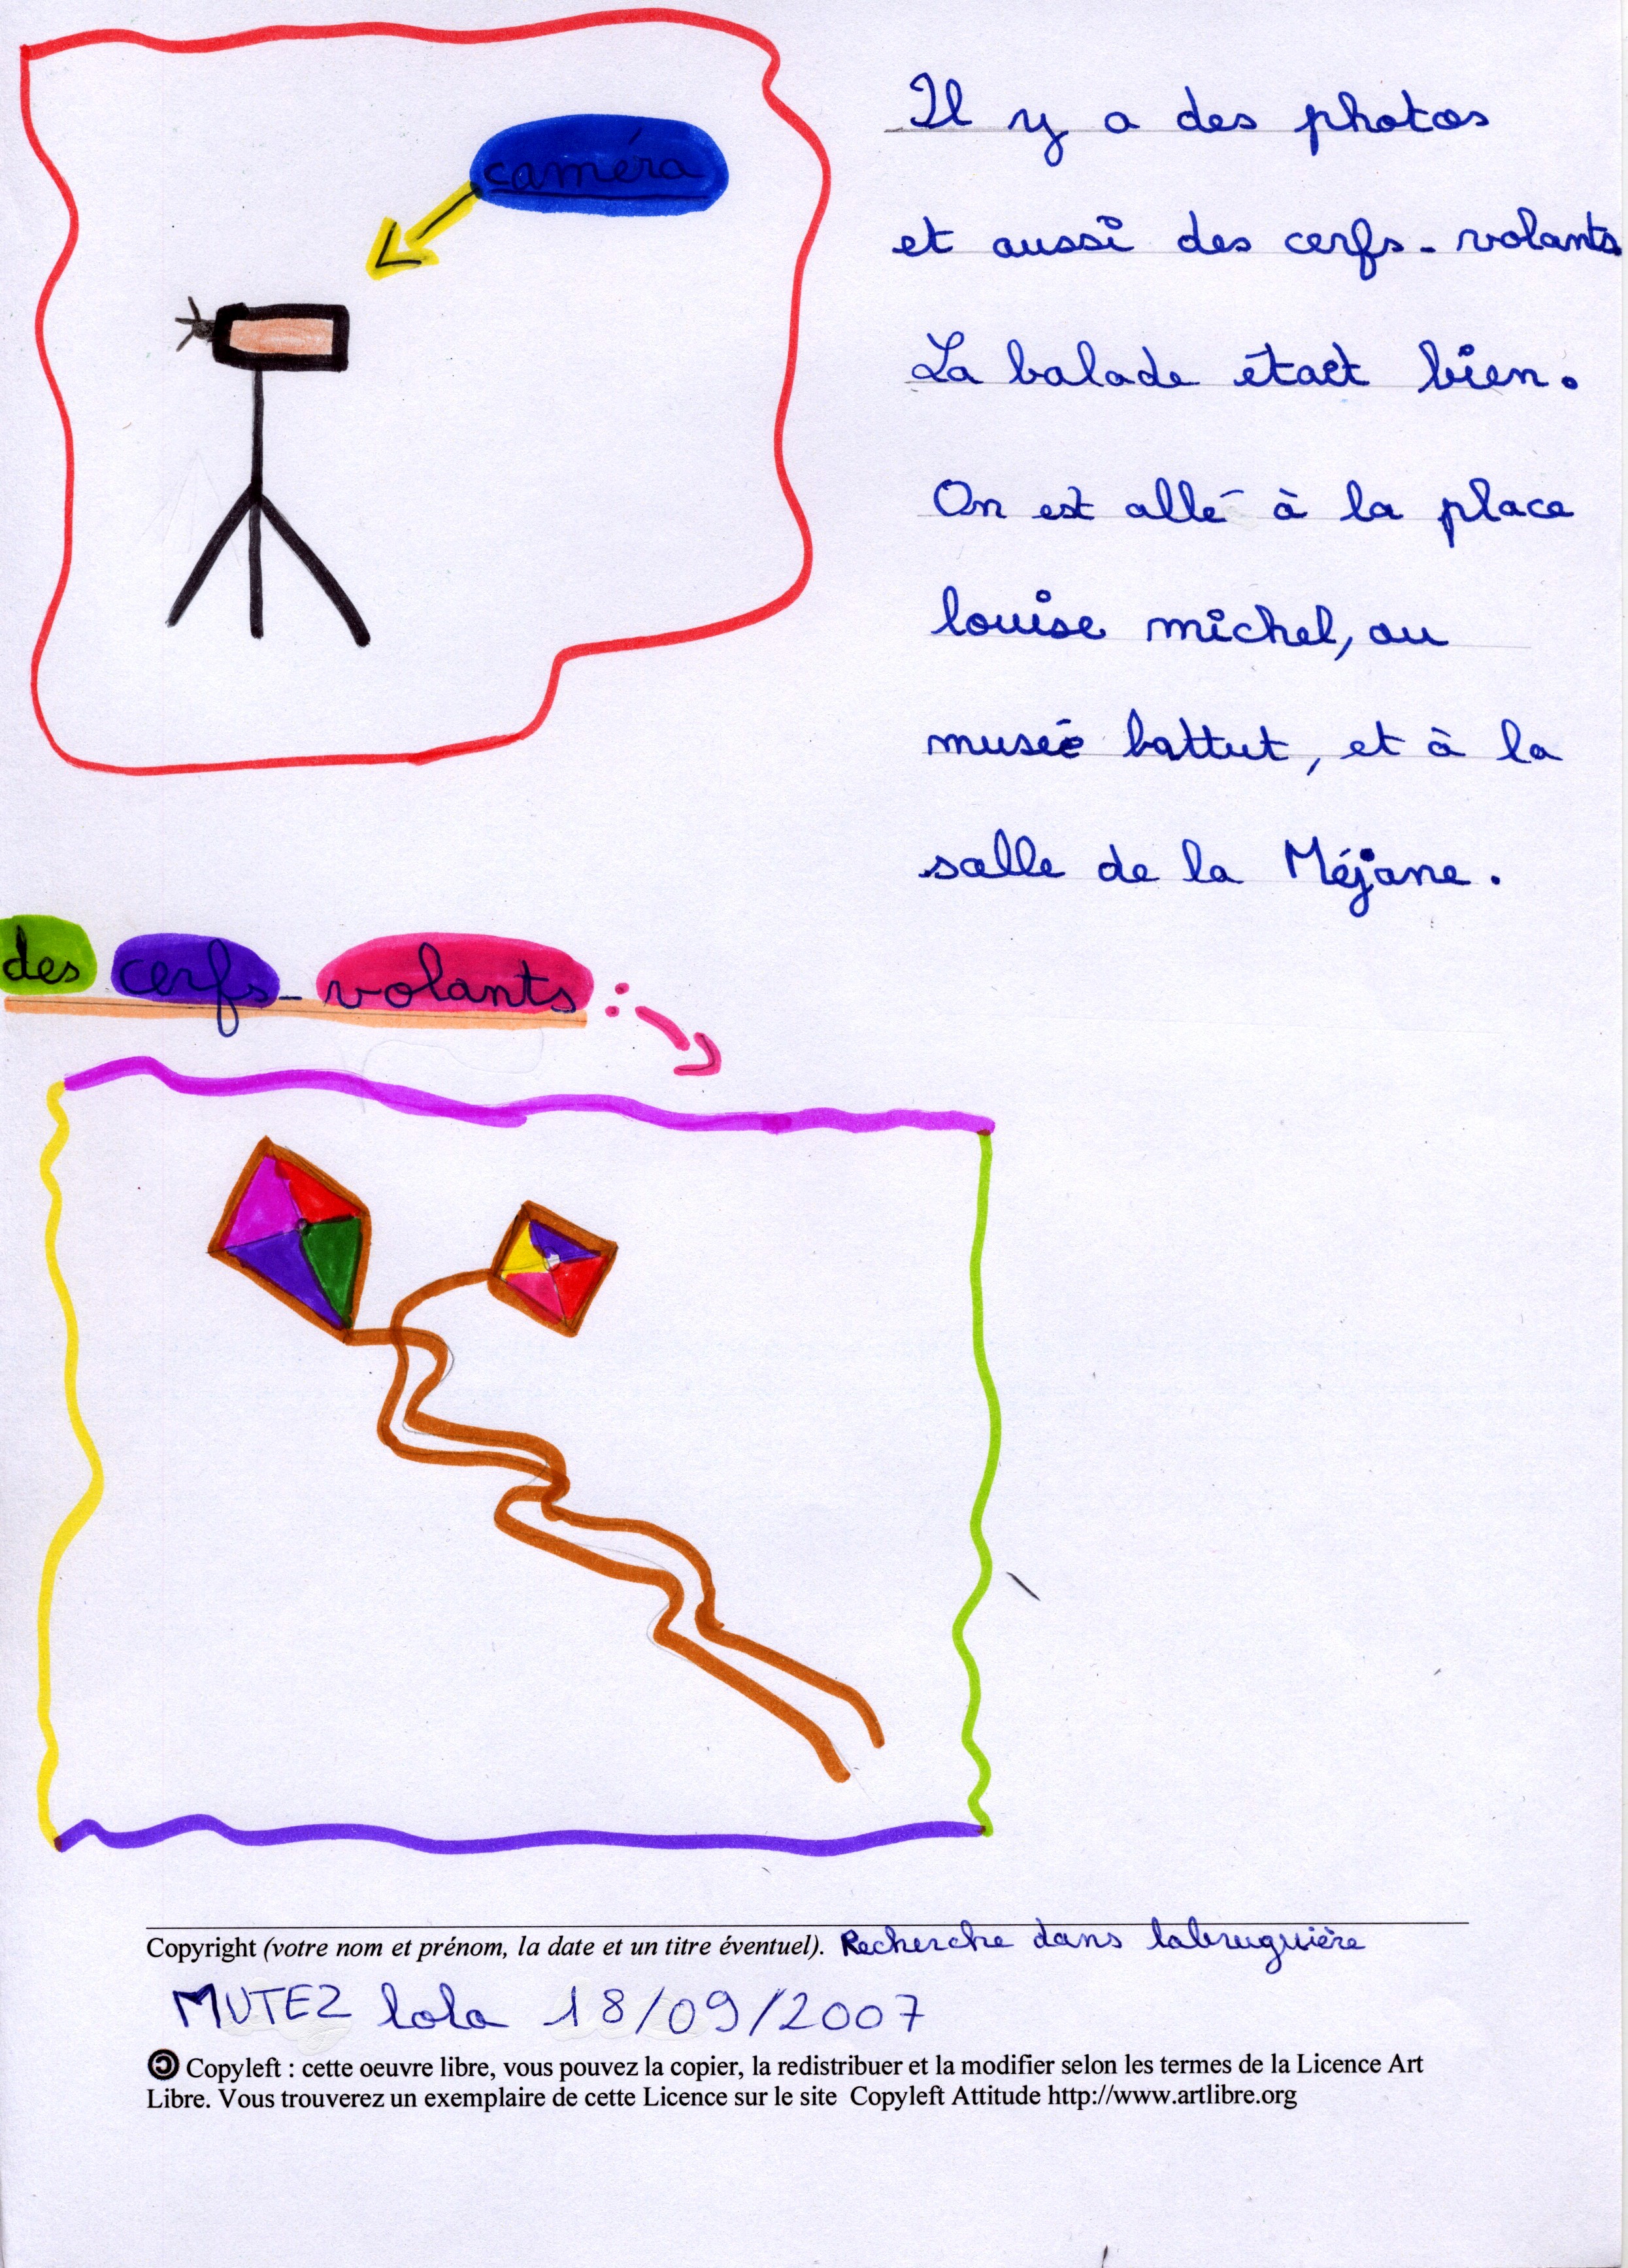 caméra
Il y a des photos
et aussi des cerfs-volants
La balade était bien.
On est allé à la place
louise michel, au
musée battut, et à la
salle de la Méjane.
des cerfs-volants :
Copyright (votre nom et prénom, la date et un titre éventuel). Recherche dans labruguière
MUTEZ lola 18/09/2007
Copyleft : cette oeuvre libre, vous pouvez la copier, la redistribuer et la modifier selon les termes de la Licence Art
Libre. Vous trouverez un exemplaire de cette Licence sur le site Copyleft Attitude http://www.artlibre.org